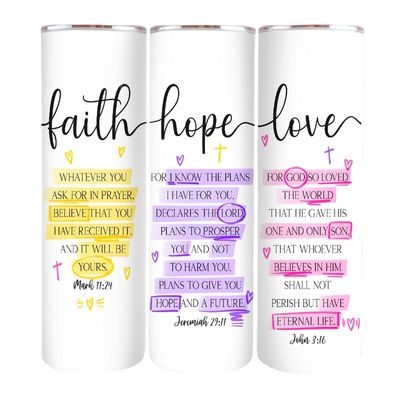 faith
WHATEVER YOU
ASK FOR IN PRAYER,
BELIEVE THAT YOU
HAVE RECEIVED IT,
AND IT WILL BE
YOURS.
Mark 11:24
hope
FOR I KNOW THE PLANS
I HAVE FOR YOU,
DECLARES THE LORD,
PLANS TO PROSPER
YOU AND NOT
TO HARM YOU,
PLANS TO GIVE YOU
HOPE AND A FUTURE.
Jeremiah 29:11
love
FOR GOD SO LOVED
THE WORLD
THAT HE GAVE HIS
ONE AND ONLY SON,
THAT WHOEVER
BELIEVES IN HIM
SHALL NOT
PERISH BUT HAVE
ETERNAL LIFE.
John 3:16